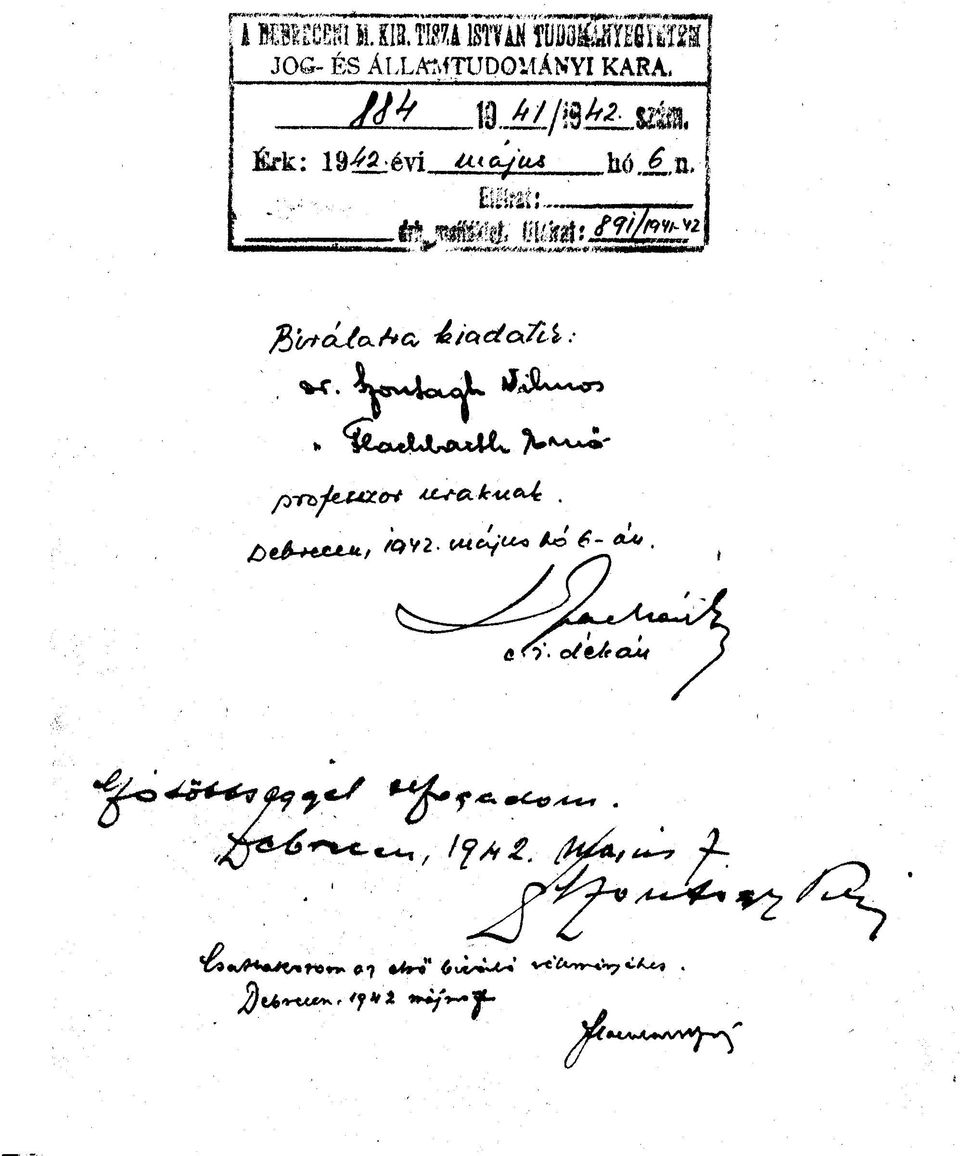 A DEBRECENI M. KIR. TISZA ISTVÁN TUDOMÁNYEGYETEM
JOG- ÉS ÁLLAMTUDOMÁNYI KARA.
884 1941/1942. szám.
Érk: 1942. évi május hó 6 n.
Előirat:
melléklet. Utóirat: 891/1941-42
Birálatra kiadatik:
dr. Szontagh Vilmos
" Flachbarth Ernő
professzor uraknak.
Debrecen, 1942. május hó 6-án.
e. i. dékán
elfogadom.
Debrecen, 1942. Május 7
Szontagh
Csatlakozom az első biráló véleményéhez.
Debrecen, 1942 május 7